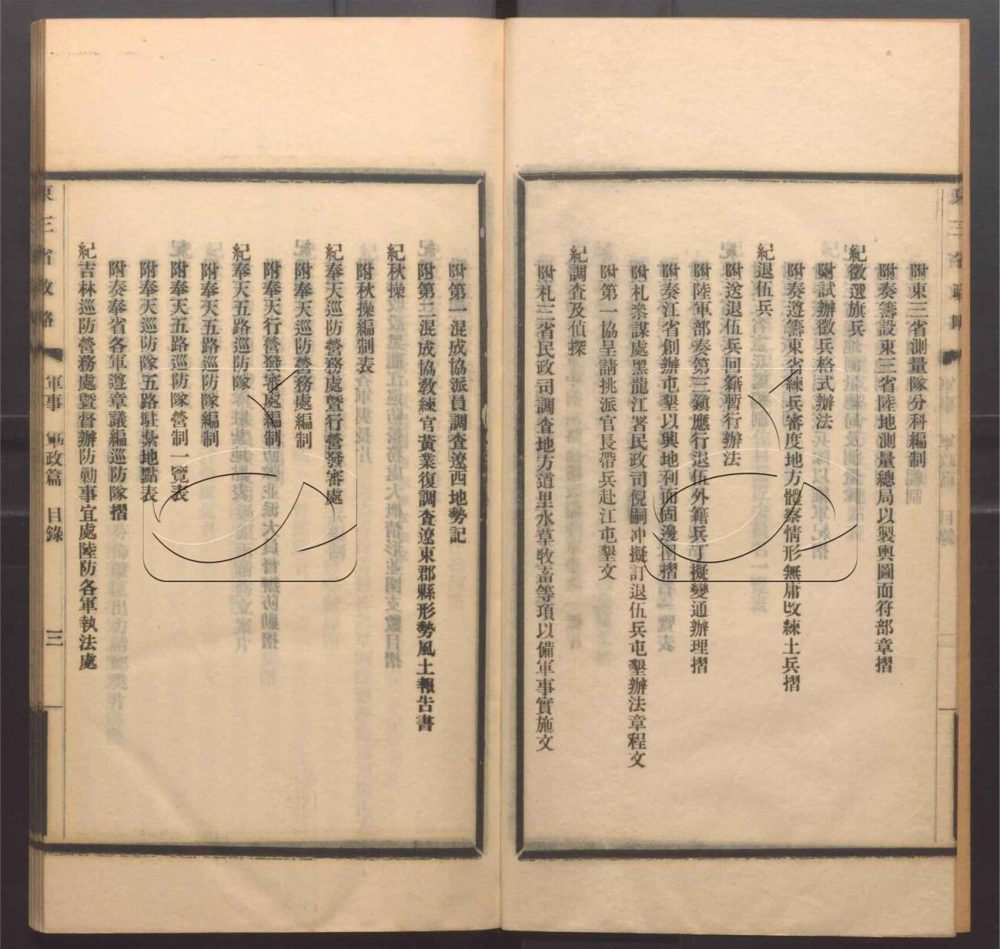 附東三省測量隊分科編制
附奏籌設東三省陸地測量總局以製輿圖而符部章摺
紀徵選旗兵
附試辦徵兵格式辦法
附奏遵籌東省練兵審度地方體察情形無庸改練土兵摺
紀退伍兵
附送退伍兵回籍暫行辦法
附陸軍部奏第三鎮應行退伍外籍兵丁擬變通辦理摺
附奏江省創辦屯墾以興地利而固邊圉摺
附札叅謀處黑龍江署民政司倪嗣冲擬訂退伍兵屯墾辦法章程文
附第一協呈請挑派官長帶兵赴江屯墾文
紀調查及偵探
附札三省民政司調查地方道里水草牧畜等項以備軍事實施文
附第一混成協派員調查遼西地勢記
附第三混成協敎練官黃業復調查遼東郡縣形勢風土報告書
紀秋操
附秋操編制表
紀奉天巡防營務處曁行營發審處
附奉天巡防營務處編制
附奉天行營發審處編制
紀奉天五路巡防隊
附奉天五路巡防隊編制
附奉天五路巡防隊營制一覽表
附奉天巡防隊五路駐紮地點表
附奏奉省各軍遵章議編巡防隊摺
紀吉林巡防營務處曁督辦防勦事宜處陸防各軍執法處
東三省政略 軍事 軍政篇 目錄 三